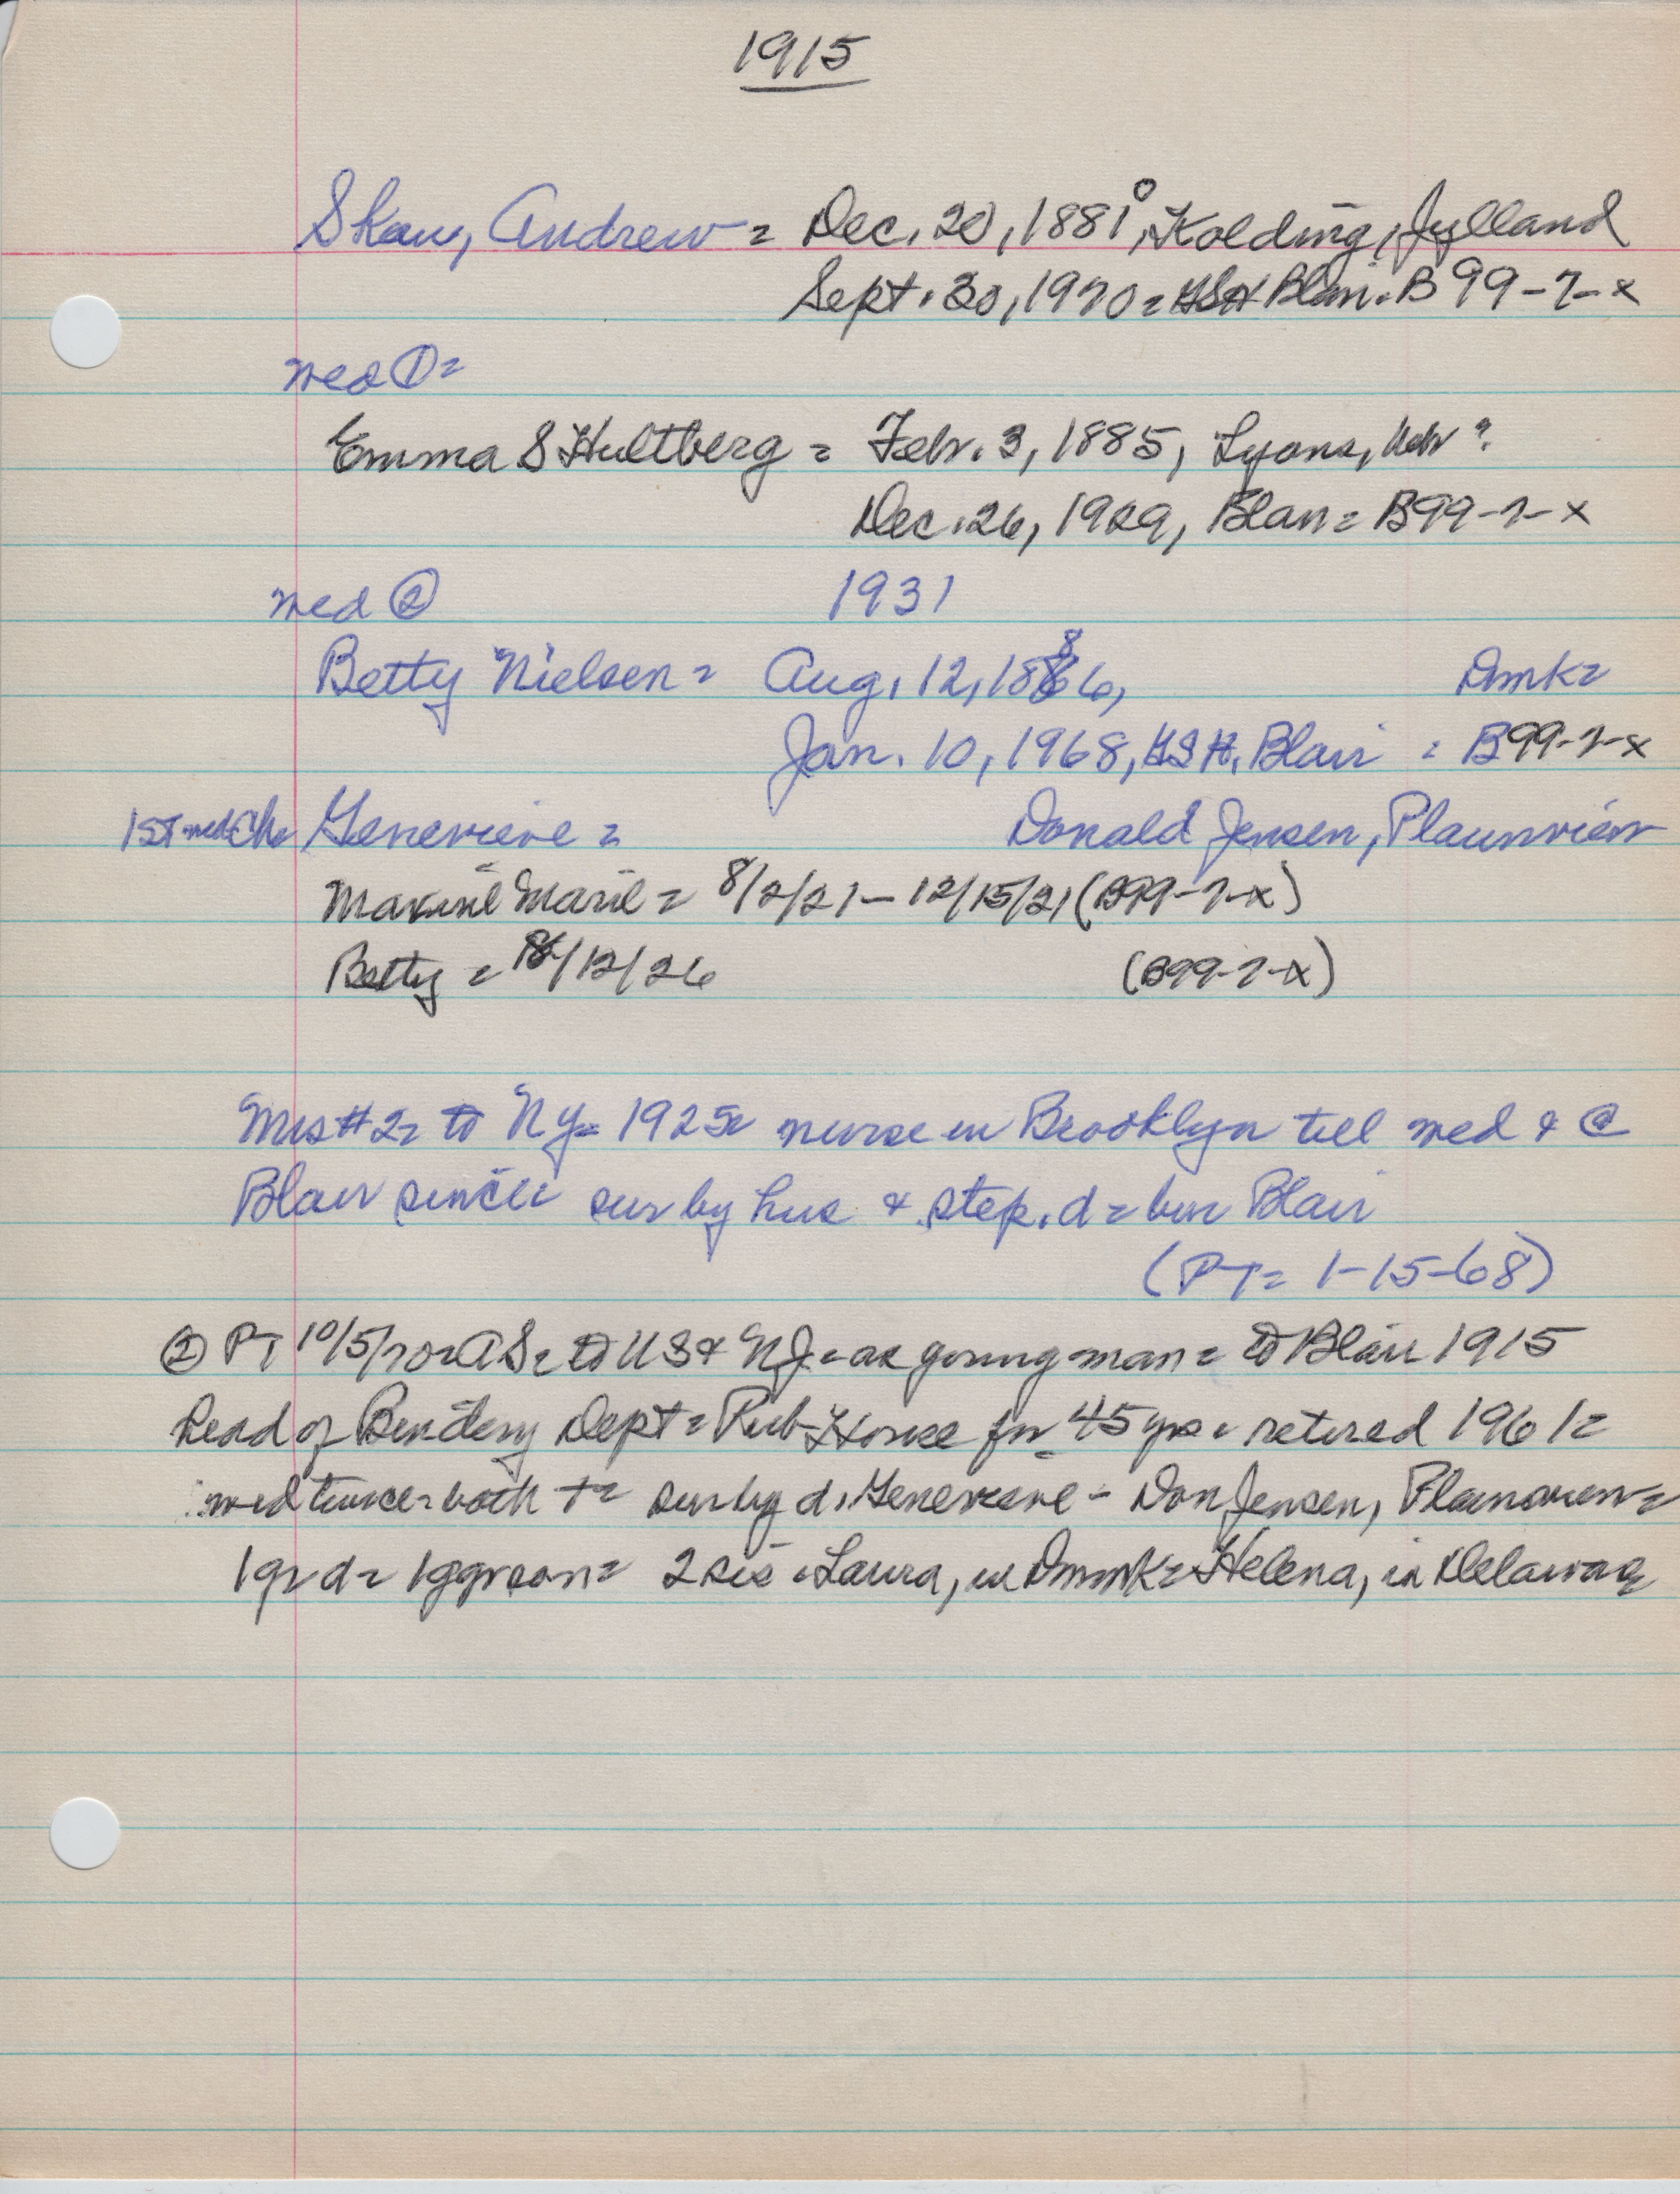 1915
Skow, Andrew = Dec. 20, 1881, Kolding, Jylland
Sept. 30, 1970 = GSH Blair. B 99-7-x
med ① =
Emma S Hultberg = Febr. 3, 1885, Lyons, Nebr ?
Dec. 26, 1929, Blair = B99-7-x
med ② 1931
Betty Nielsen = Aug. 12, 1886, Dmk =
Jan. 10, 1968, GSH, Blair = B99-7-x
1st med Ch = Genevieve = Donald Jensen, Plainview
Maxine Marie = 8/2/21 - 12/15/21 (B99-7-x)
Betty = 8/12/26 (B99-7-x)
Mrs #2 = to NY = 1925 = nurse in Brooklyn till med & @
Blair since sur by hus & step. d = bur Blair
(PT = 1-15-68)
② PT 10/5/70 = AS = to US & NJ = as young man = to Blair 1915
head of Bindery Dept = Pub House for 45 yrs = retired 1961 =
med twice = both † = sur by d. Genevieve - Don Jensen, Plainview =
1 gr d = 1 ggrson = 2 sis = Laura, in Dnmk = Helena, in Delaware